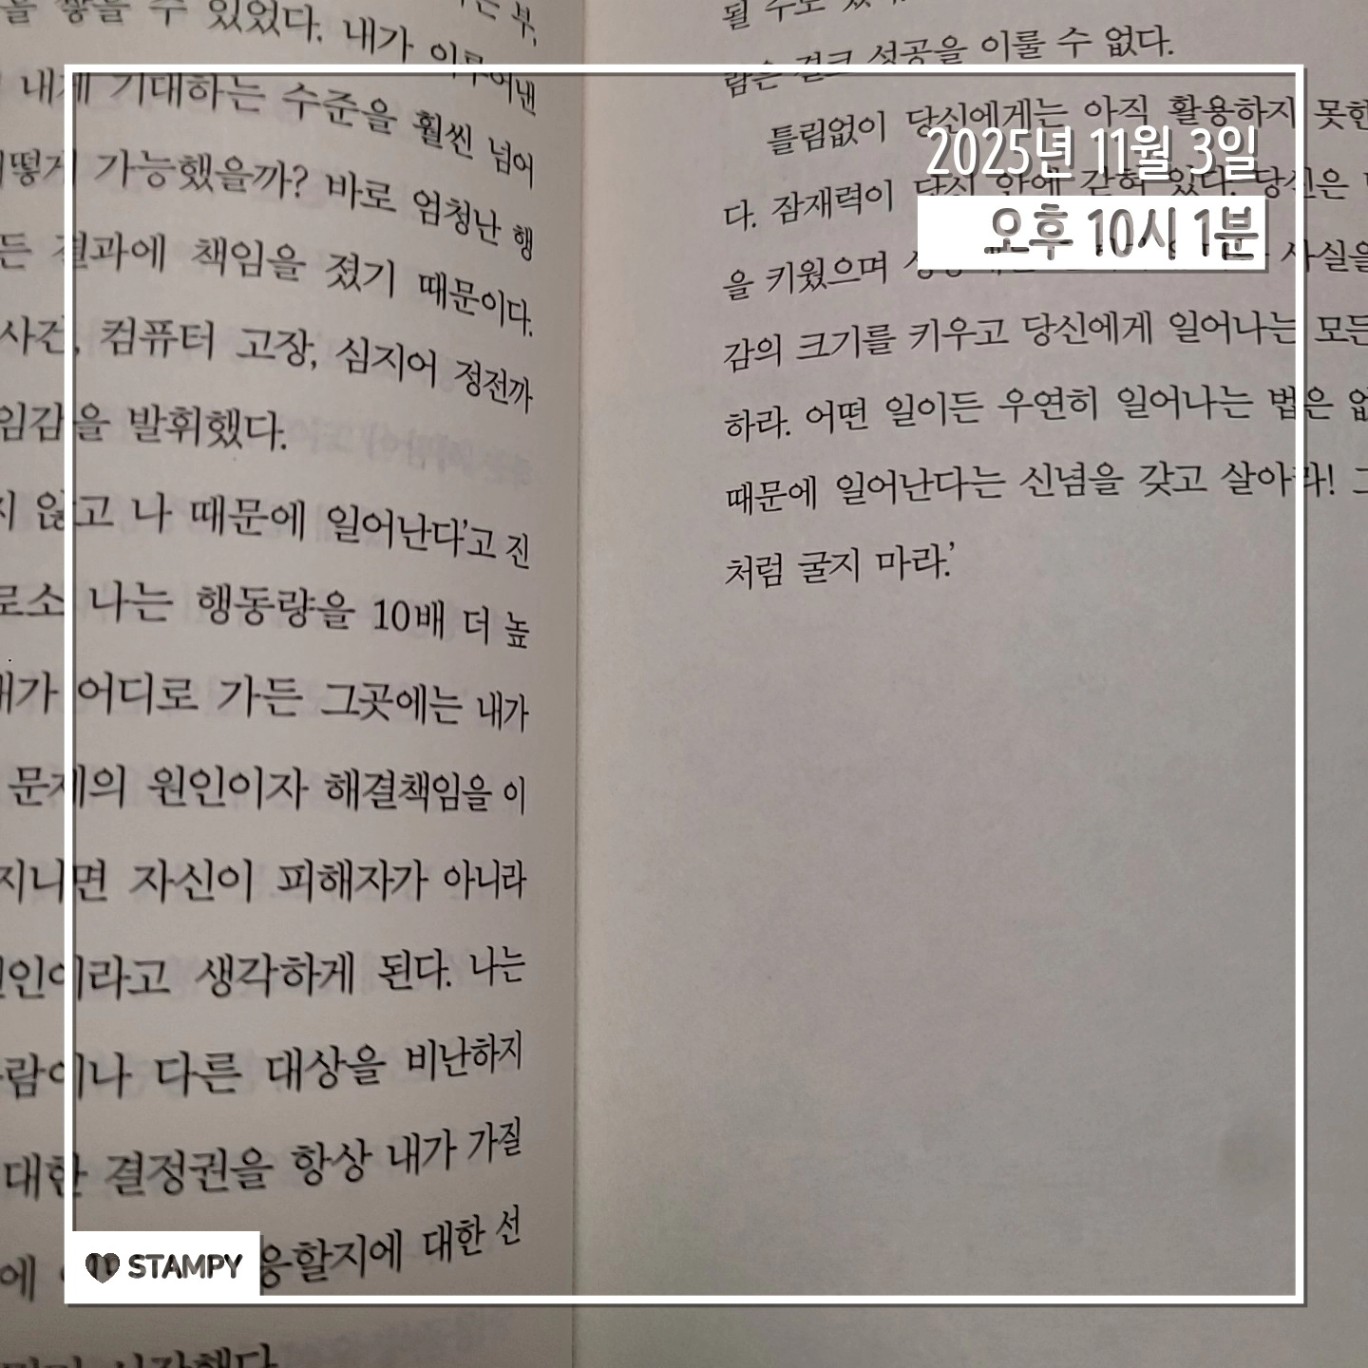 쌓을 수 있었다. 내가 이루어낸
내게 기대하는 수준을 훨씬 넘어
떻게 가능했을까? 바로 엄청난 행
든 결과에 책임을 졌기 때문이다.
사건, 컴퓨터 고장, 심지어 정전까
임감을 발휘했다.
않고 나 때문에 일어난다'고 진
로소 나는 행동량을 10배 더 높
내가 어디로 가든 그곳에는 내가
문제의 원인이자 해결책임을 이
지니면 자신이 피해자가 아니라
원인이라고 생각하게 된다. 나는
람이나 다른 대상을 비난하지
대한 결정권을 항상 내가 가질
에 응할지에 대한 선
될 수도
람은 결코 성공을 이룰 수 없다.
틀림없이 당신에게는 아직 활용하지 못한
다. 잠재력이 당신 안에 갇혀 있다. 당신은
을 키웠으며 사실을
감의 크기를 키우고 당신에게 일어나는 모든
하라. 어떤 일이든 우연히 일어나는 법은
때문에 일어난다는 신념을 갖고 살아라!
처럼 굴지 마라.'
2025년 11월 3일
오후 10시 1분
STAMPY